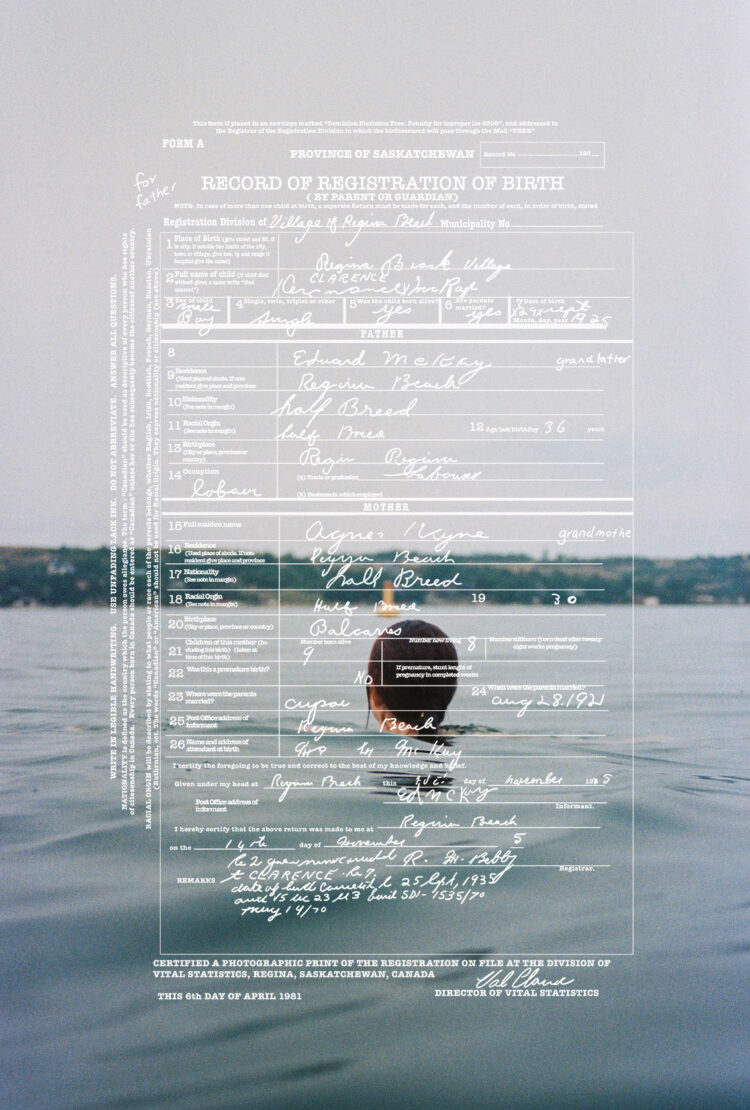 This form if placed in an envelope marked "Dominion Statistics Free. Penalty for improper use $300". and addressed to
the Registrar of the Registration Division in which the birth occured will pass through the Mail "FREE"
FORM A
PROVINCE OF SASKATCHEWAN
Record No 190
for father
RECORD OF REGISTRATION OF BIRTH
( BY PARENT OR GUARDIAN)
NOTE: In case of more than one child at birth, a seperate Return must be made for each, and the number of each, in order of birth, stated
Registration Division of Village of Regina Beach Municipality No
1 Place of Birth (give street and
Regina Beach Village
2 Full name of child (if child died without given a name write "died unnamed")
CLARENCE
3 Sex of child Male Boy
4 Single, twin, triplet or other Single
5 Was the child born alive? yes
6 Are parents married? yes
7 Date of birth Sept 1925
Month, day, year
FATHER
8 Edward McKay grandfather
9 Residence (Usual place of abode. If non-resident give place and province Regina Beach
10 Nationality (See note in margin) half Breed
11 Racial Orgin (See note in margin) half Breed
12 Age last birthday 36 years
13 Birthplace (City or place, province or country) Regina
14 Occuption (a) Trade or profession Labour
(b) Business in which employed
MOTHER
15 Full maiden name Agnes grandmothe
16 Residence (Used place of abode. If non-resident give place and province Regina Beach
17 Nationality (See note in margin) half Breed
18 Racial Orgin (See note in margin) Half Breed
19 30
20 Birthplace (City or place, province or country) Balcarres
21 Children of this mother (Including this birth) (taken at time of this birth) Number born alive 9 Number now living 8
22 Was this a premature birth? No If premature, stunt lenght of pregnancy in completed weeks
23 Where were the parents married?
24 When were the parents married? Aug 28.1921
25 Post Office address of Informant Regina Beach
26 Name and address of attendant at birth McKay
I certify the foregoing to be true and correct to the best of my knowledge and belief.
Given under my head at Regina Beach this day of November 193 5
Ed McKay
Post Office address of Informant Informant.
Regina Beach
I hereby certify that the above return was made to me at
on the 14th day of November 5
Registrar.
REMARKS
CLARENCE
date of birth 25 Sept, 1935
May 14/70
CERTIFIED A PHOTOGRAPHIC PRINT OF THE REGISTRATION ON FILE AT THE DIVISION OF
VITAL STATISTICS, REGINA, SASKATCHEWAN, CANADA
THIS 6th DAY OF APRIL 1981
DIRECTOR OF VITAL STATISTICS
WRITE IN LEGIBLE HANDWRITING. USE UNFADING LACK INK. DO NOT ABBREVIATE. ANSWER ALL QUESTIONS.
NATIONALITY is defined as the country which the person owes allegiance. The term "Canadian" should be used as descriptive of every person who has rights
of citezenship in Canada. Every person born in Canada should be entered as "Canadian" unless her or she has subsequently become the citizen of another country.
RACIAL ORGIN will be described by stating to what people or race each of the parents belongs, whether English, Irish, Scottish, French, German, Russian, Ukrainian
(Ruthenian, ect. The words "Canadian" or "American" should not be used for Racial Origin. They express nationality or citizenship (see above)